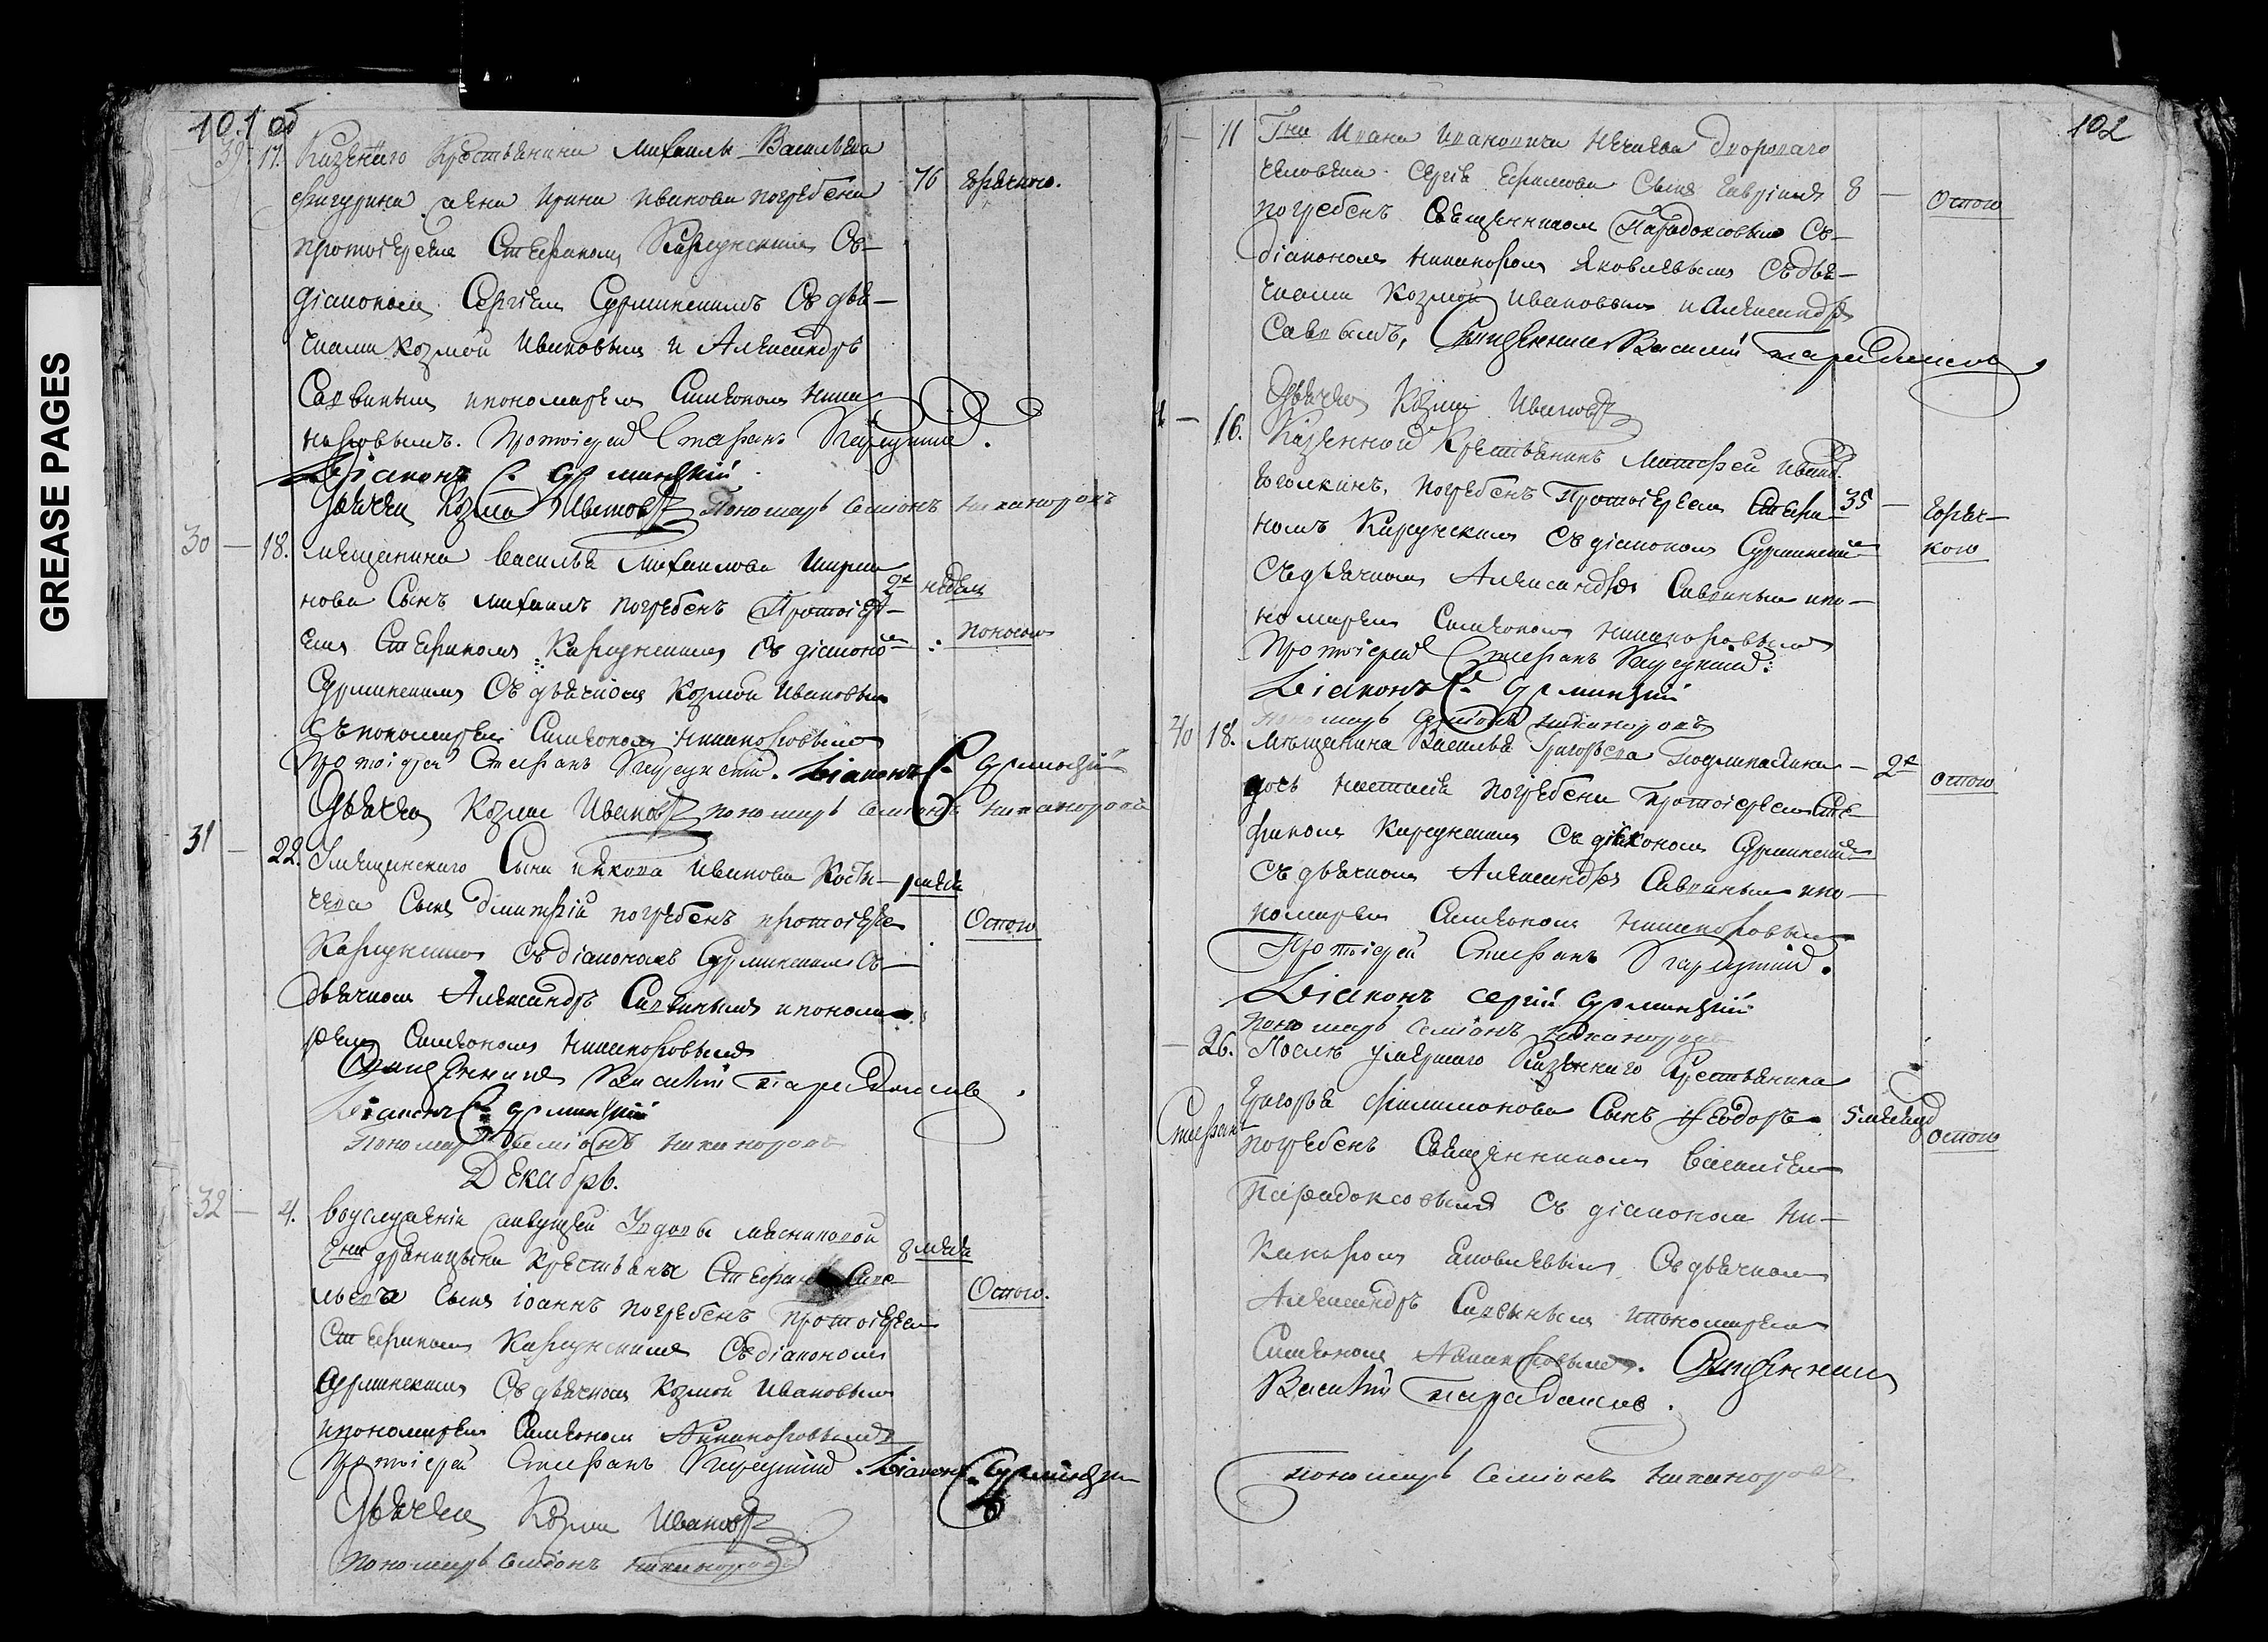 GREASE PAGES
101 об
39 17. Казеннаго Крестьянина Михаила Васильева
Фигурина жена Ирина Иванова погребена 76 горячкою.
протоіереем Стефаном Карсунским Съ
діаконом Сергіем Сурминским Съ дья-
чками Козмой Ивановым и Александр
Саввиным и пономарем Симеоном Ника-
норовымъ. Протоіерей Стефанъ Карсунский.
Діаконъ С. Сурминскій
Дьячек Козма Ивановъ Пономарь Семіонъ Никаноровъ
30 — 18. мещанина Василья Михаилова
нова Сынъ Михаилъ погребенъ Протоіер- 2х недель
ем Стефаном Карсунским Съ діаконом поносом
Сурминским Съ дьячком Козмой Ивановым
съ пономарем Симеоном Никаноровым
Протоіерей Стефанъ Карсунский. Діаконъ С. Сурминскій
Дьячек Козма Ивановъ пономарь Семіонъ Никаноровъ
31 — 22. Умещанскаго Сына Якова Иванова
чева Сынъ Дмитрій погребенъ протоіерее Оспою
Карсунским Съ діаконом Сурминским Съ
дьячком Александр Саввиным и понома-
рем Симеоном Никаноровым
Священник Василій Парадоксов
Діаконъ С. Сурминскій
Пономарь Семіонъ Никаноровъ
Декабрь.
32 — 4. Вуслуженіи живущей Увдовы мясниковой
Крестьянина Стефана 8 меся
Сынъ Іоаннъ погребенъ протоіереем Оспою.
Стефаном Карсунским Съ діаконом
Сурминским Съ дьячком Козмой Ивановым
и пономарем Симеоном Никаноровым
Протоіерей Стефанъ Карсунский. Діаконъ С. Сурминскій
Дьячек Козма Ивановъ
Пономарь Семіонъ Никаноровъ
102
— 11 Гна Ивана Ивановича Нечаева дворового
человека Сергія Ефимова Сынъ Гавріилъ 8 — Оспою
погребенъ Священником Парадоксовым Съ
діаконом Никанором Яковлевым Съ дья-
чками Козмой Ивановым и Александр
Саввымъ, Священник Василій Парадоксов.
Дьячек Козма Ивановъ
— 16. Казенной Крестьянинъ Матфей Иванов
Гоголкинъ, погребенъ Протоіереем Стефа- 35 — горяч-
номъ Карсунским Съ діаконом Сурминским кою
Съ дьячком Александр Саввиным и по-
номарем Симеоном Никаноровым
Протоіерей Стефанъ Карсунский.
Діаконъ С. Сурминскій
Пономарь Семіонъ Никаноровъ
40 18. Мещанина Василья Григорьева — 2х оспою
дочь Настасія погребена Протоіереем Сте-
фаном Карсунским Съ діаконом Сурминским
Съ дьячком Александр Саввиным и по-
номарем Симеоном Никаноровым
Протоіерей Стефанъ Карсунский.
Діаконъ Сергій Сурминскій
Пономарь Семіонъ Никаноровъ
— 26. После умершаго Казеннаго Крестьянина
Григорья Филимонова Сынъ Феодоръ 5 месяц оспою
Стефанъ
погребенъ Священником Василіем
Парадоксовым Съ діаконом Ни-
канором Яковлевым Съ дьячком
Александр Саввиным и пономарем
Симеоном Никаноровым. Священник
Василій Парадоксов.
Пономарь Семіонъ Никаноровъ